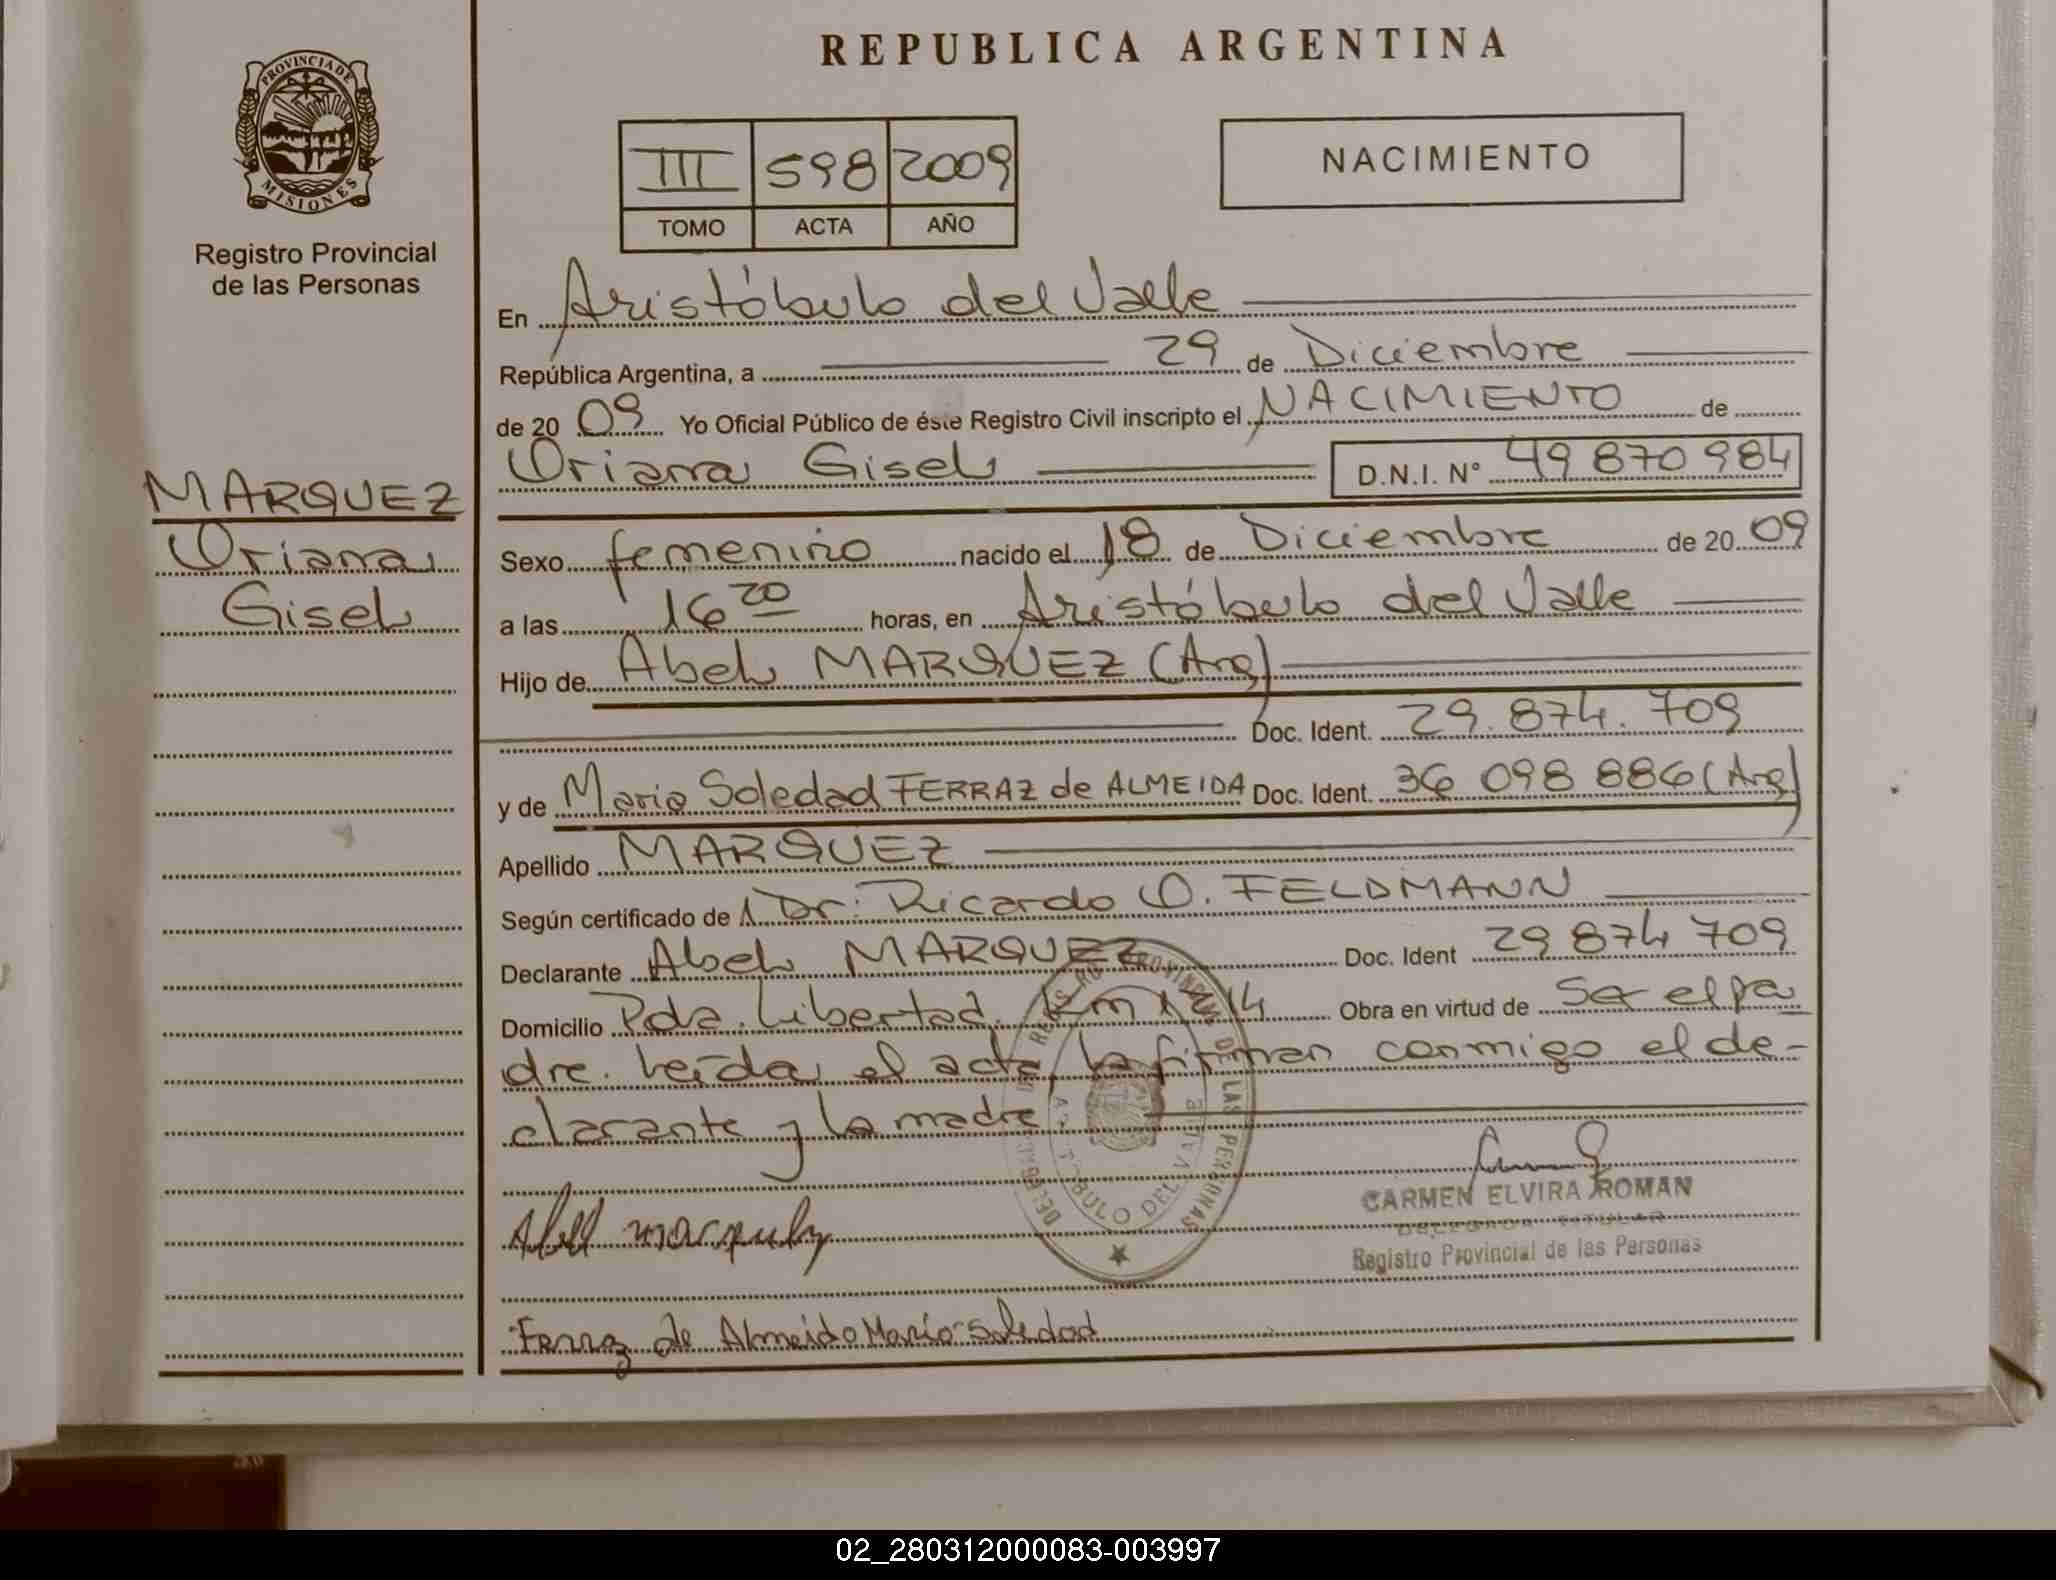 REPUBLICA ARGENTINA
PROVINCIA DE
MISIONES
Registro Provincial
de las Personas
III 598 2009
TOMO ACTA AÑO
NACIMIENTO
MARQUEZ
Oriana
Gisel
En Aristóbulo del Valle
República Argentina, a 29 de Diciembre
de 20 09 Yo Oficial Público de éste Registro Civil inscripto el NACIMIENTO de
Oriana Gisel D.N.I. N° 49 870 984
Sexo femenino nacido el 18 de Diciembre de 20 09
a las 16 20 horas, en Aristóbulo del Valle
Hijo de Abel MARQUEZ (Arg)
Doc. Ident. 29.874.709
y de Maria Soledad FERRAZ de ALMEIDA Doc. Ident. 36 098 886 (Arg)
Apellido MARQUEZ
Según certificado de Dr. Ricardo O. FELDMANN
Declarante Abel MARQUEZ Doc. Ident 29 874 709
Domicilio Pda. Libertad. Km 1214 Obra en virtud de Ser el pa
dre. Leída el acta, la firman conmigo el de-
clarante y la madre.
Abel marquez
CARMEN ELVIRA ROMAN
DELEGADA TITULAR
Registro Provincial de las Personas
Ferraz de Almeida Maria Soledad
02_280312000083-003997